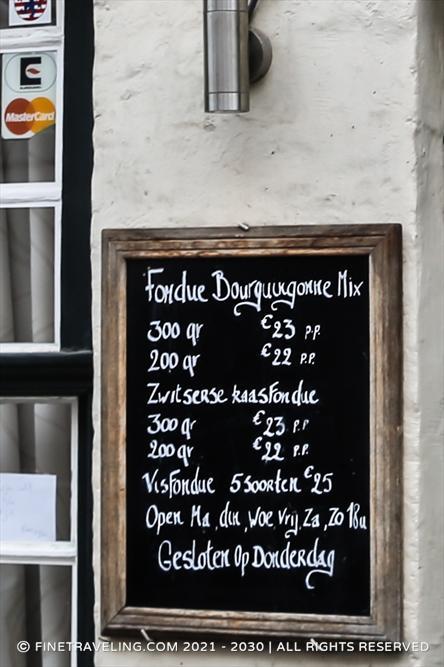 MasterCard
Fondue Bourguugonne Mix
300 gr €23 P.P.
200 gr €22 P.P.
Zwitserse kaasfondue
300 gr €23 P.P.
200 gr €22 P.P.
Visfondue 5 soorten €25
Open Ma, din, Woe Vrij, Za, Zo 18u
Gesloten Op Donderdag
© FINETRAVELING.COM 2021 - 2030 | ALL RIGHTS RESERVED